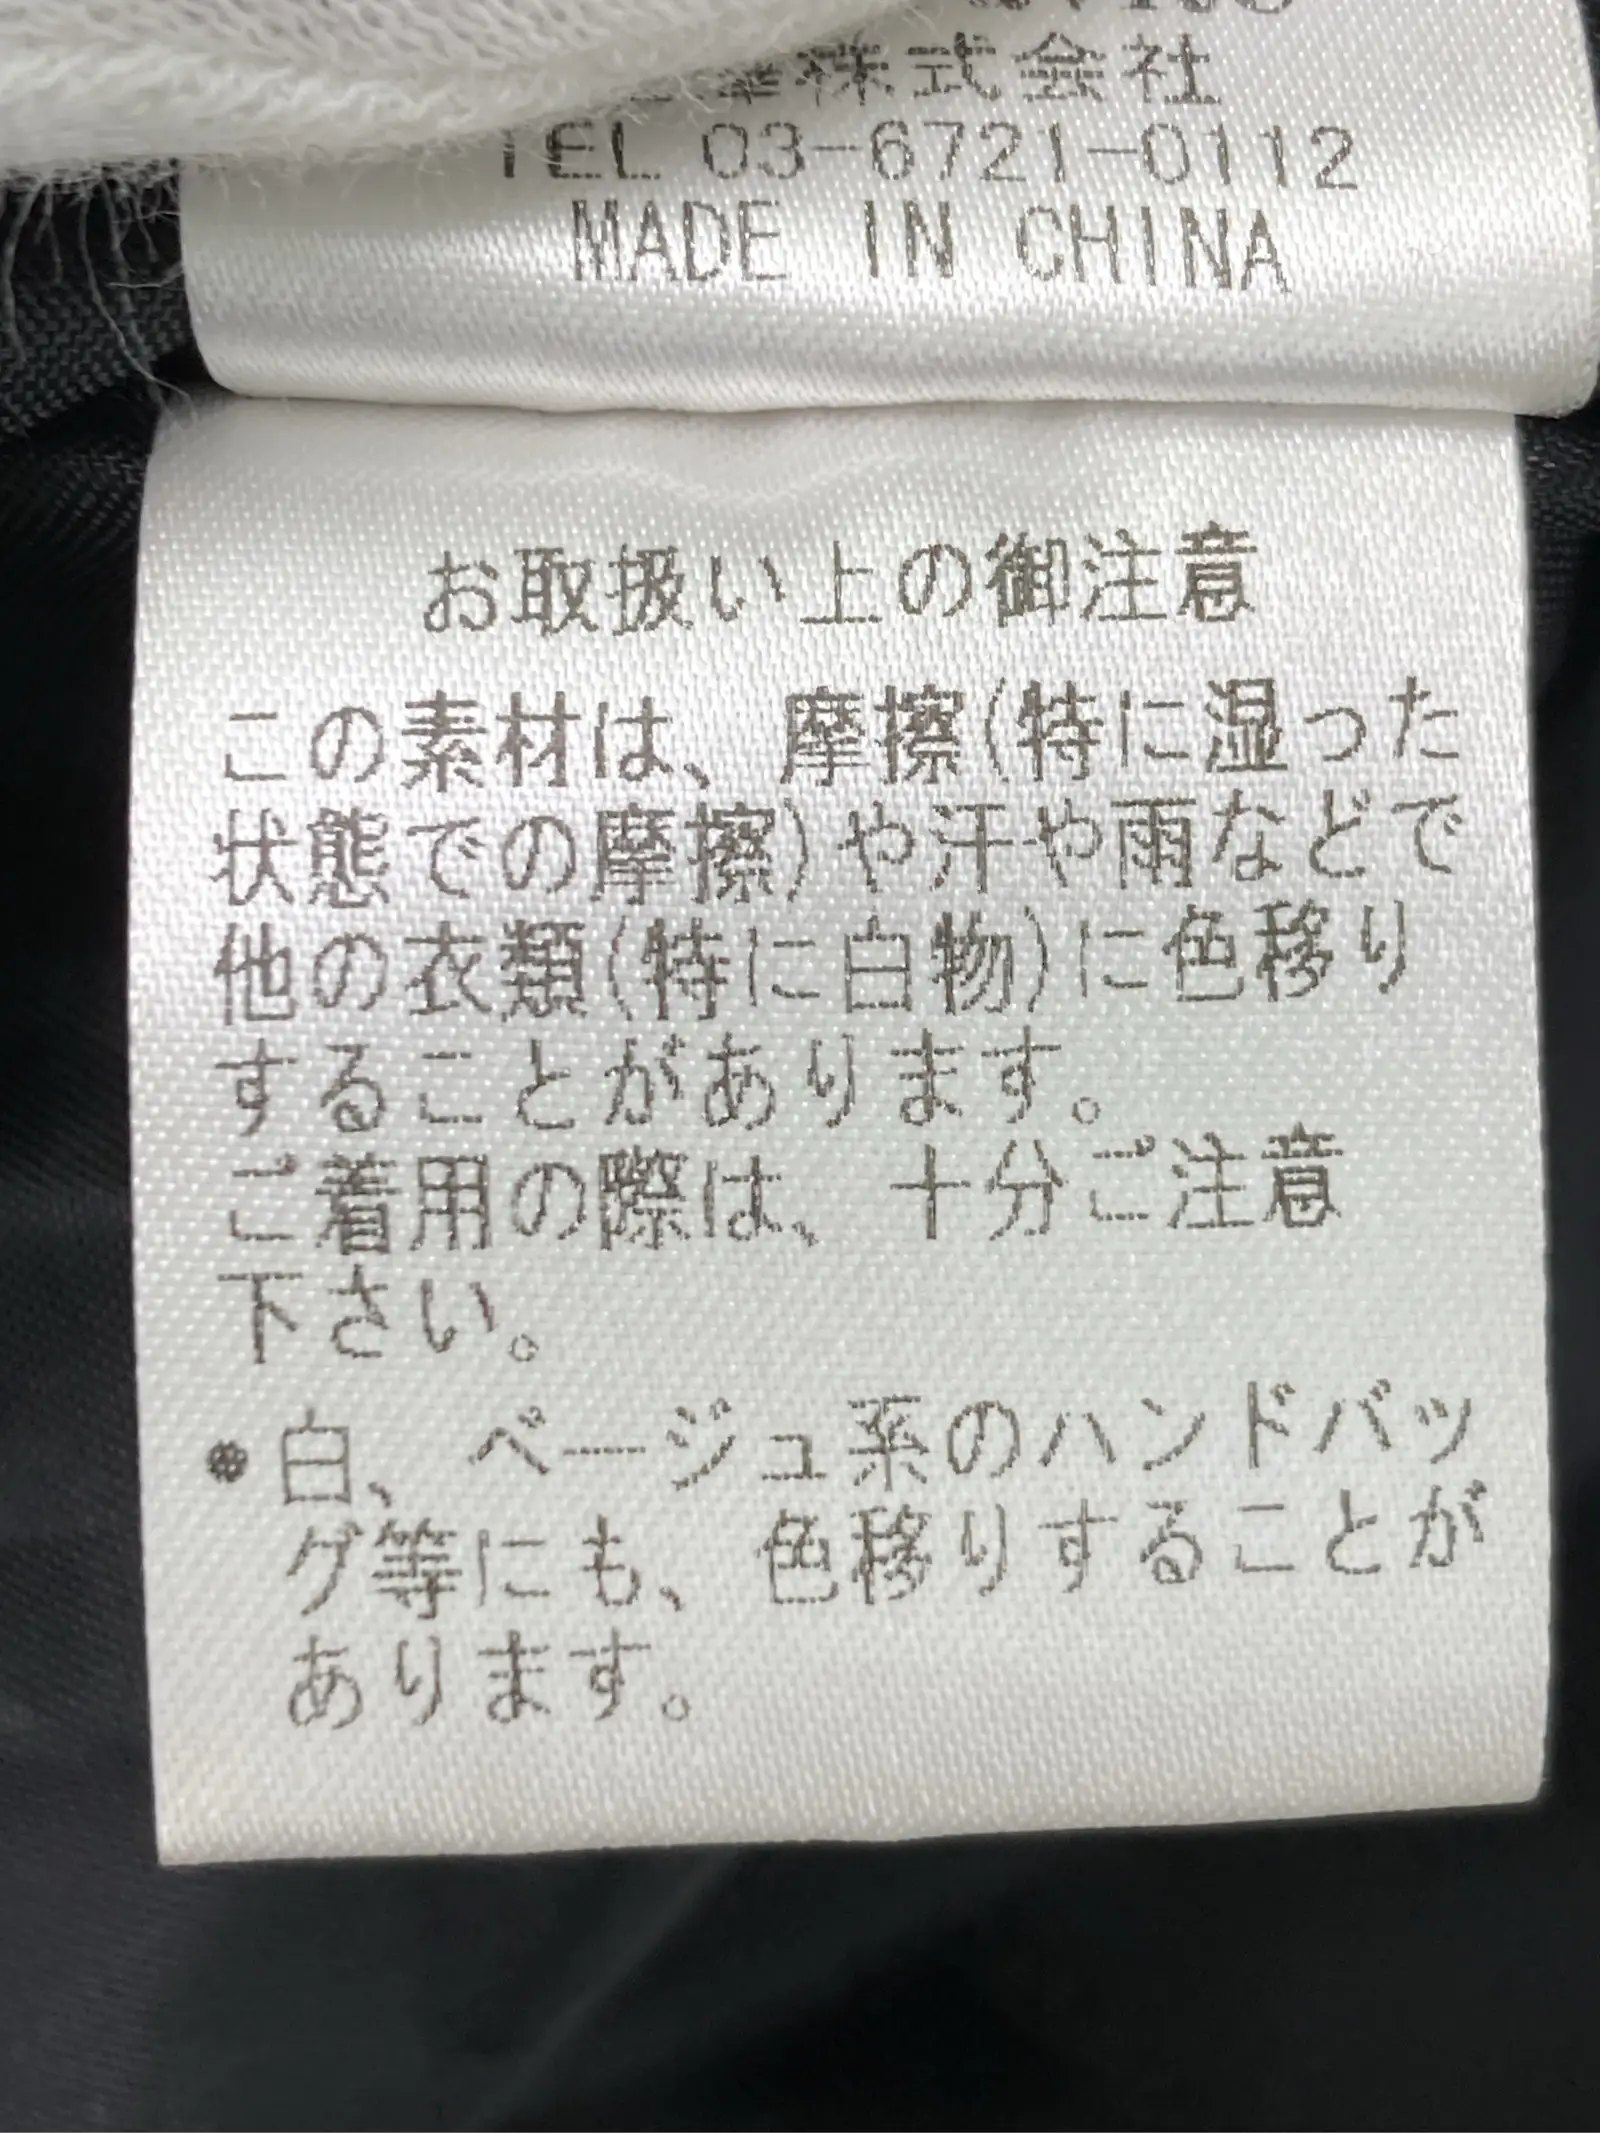 株式会社
TEL 03-6721-0112
MADE IN CHINA
お取扱い上の御注意
この素材は、摩擦(特に湿った
状態での摩擦)や汗や雨などで
他の衣類(特に白物)に色移り
することがあります。
ご着用の際は、十分ご注意
下さい。
●白、ベージュ系のハンドバッ
グ等にも、色移りすることが
あります。